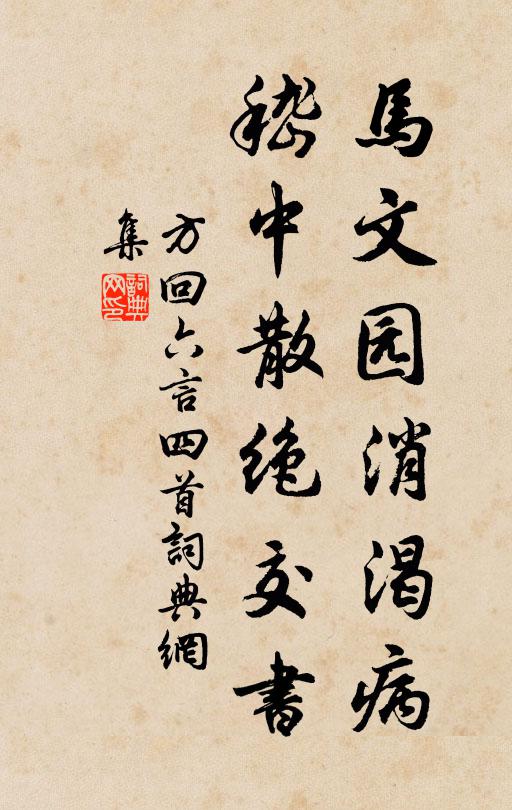 馬文园消渴病
嵇中散绝交書
方回六言四首詞典網
集
詞典
网印